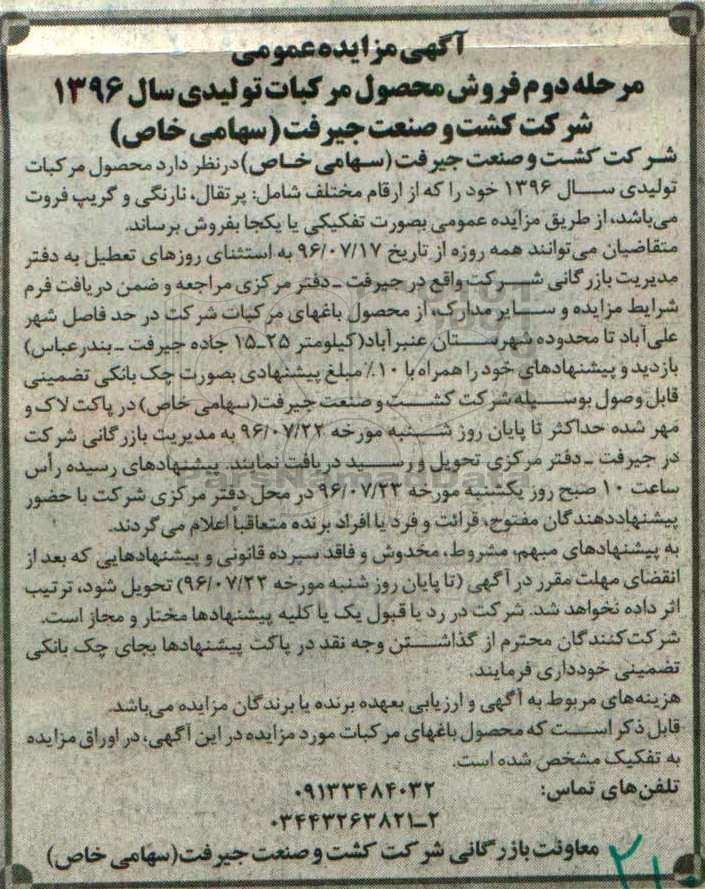 آگهی مزایده عمومی
مرحله دوم فروش محصول مرکبات تولیدی سال ۱۳۹۶
شرکت کشت و صنعت جیرفت (سهامی خاص)
شرکت کشت و صنعت جیرفت (سهامی خاص) در نظر دارد محصول مرکبات
تولیدی سال ۱۳۹۶ خود را که از ارقام مختلف شامل: پرتقال، نارنگی و گریپ فروت
می‌باشد، از طریق مزایده عمومی بصورت تفکیکی یا یکجا بفروش برساند.
متقاضیان می‌توانند همه روزه از تاریخ ۹۶/۰۷/۱۷ به استثنای روزهای تعطیل به دفتر
مدیریت بازرگانی شرکت واقع در جیرفت ـ دفتر مرکزی مراجعه و ضمن دریافت فرم
شرایط مزایده و سایر مدارک، از محصول باغهای مرکبات شرکت در حد فاصل شهر
علی‌آباد تا محدوده شهرستان عنبرآباد (کیلومتر ۲۵ـ۱۵ جاده جیرفت ـ بندرعباس)
بازدید و پیشنهادهای خود را همراه با ۱۰٪ مبلغ پیشنهادی بصورت چک بانکی تضمینی
قابل وصول بوسیله شرکت کشت و صنعت جیرفت (سهامی خاص) در پاکت لاک و
مهر شده حداکثر تا پایان روز شنبه مورخه ۹۶/۰۷/۲۲ به مدیریت بازرگانی شرکت
در جیرفت ـ دفتر مرکزی تحویل و رسید دریافت نمایند. پیشنهادهای رسیده رأس
ساعت ۱۰ صبح روز یکشنبه مورخه ۹۶/۰۷/۲۳ در محل دفتر مرکزی شرکت با حضور
پیشنهاددهندگان مفتوح، قرائت و فرد یا افراد برنده متعاقباً اعلام می‌گردند.
به پیشنهادهای مبهم، مشروط، مخدوش و فاقد سپرده قانونی و پیشنهادهایی که بعد از
انقضای مهلت مقرر در آگهی (تا پایان روز شنبه مورخه ۹۶/۰۷/۲۲) تحویل شود، ترتیب
اثر داده نخواهد شد. شرکت در رد یا قبول یک یا کلیه پیشنهادها مختار و مجاز است.
شرکت‌کنندگان محترم از گذاشتن وجه نقد در پاکت پیشنهادها بجای چک بانکی
تضمینی خودداری فرمایند.
هزینه‌های مربوط به آگهی و ارزیابی بعهده برنده یا برندگان مزایده می‌باشد.
قابل ذکر است که محصول باغهای مرکبات مورد مزایده در این آگهی، در اوراق مزایده
به تفکیک مشخص شده است.
تلفن‌های تماس: ۰۹۱۳۳۴۸۴۰۳۲
۰۳۴۴۳۲۶۳۸۲۱ـ۲
معاونت بازرگانی شرکت کشت و صنعت جیرفت (سهامی خاص)
ParsNamadData